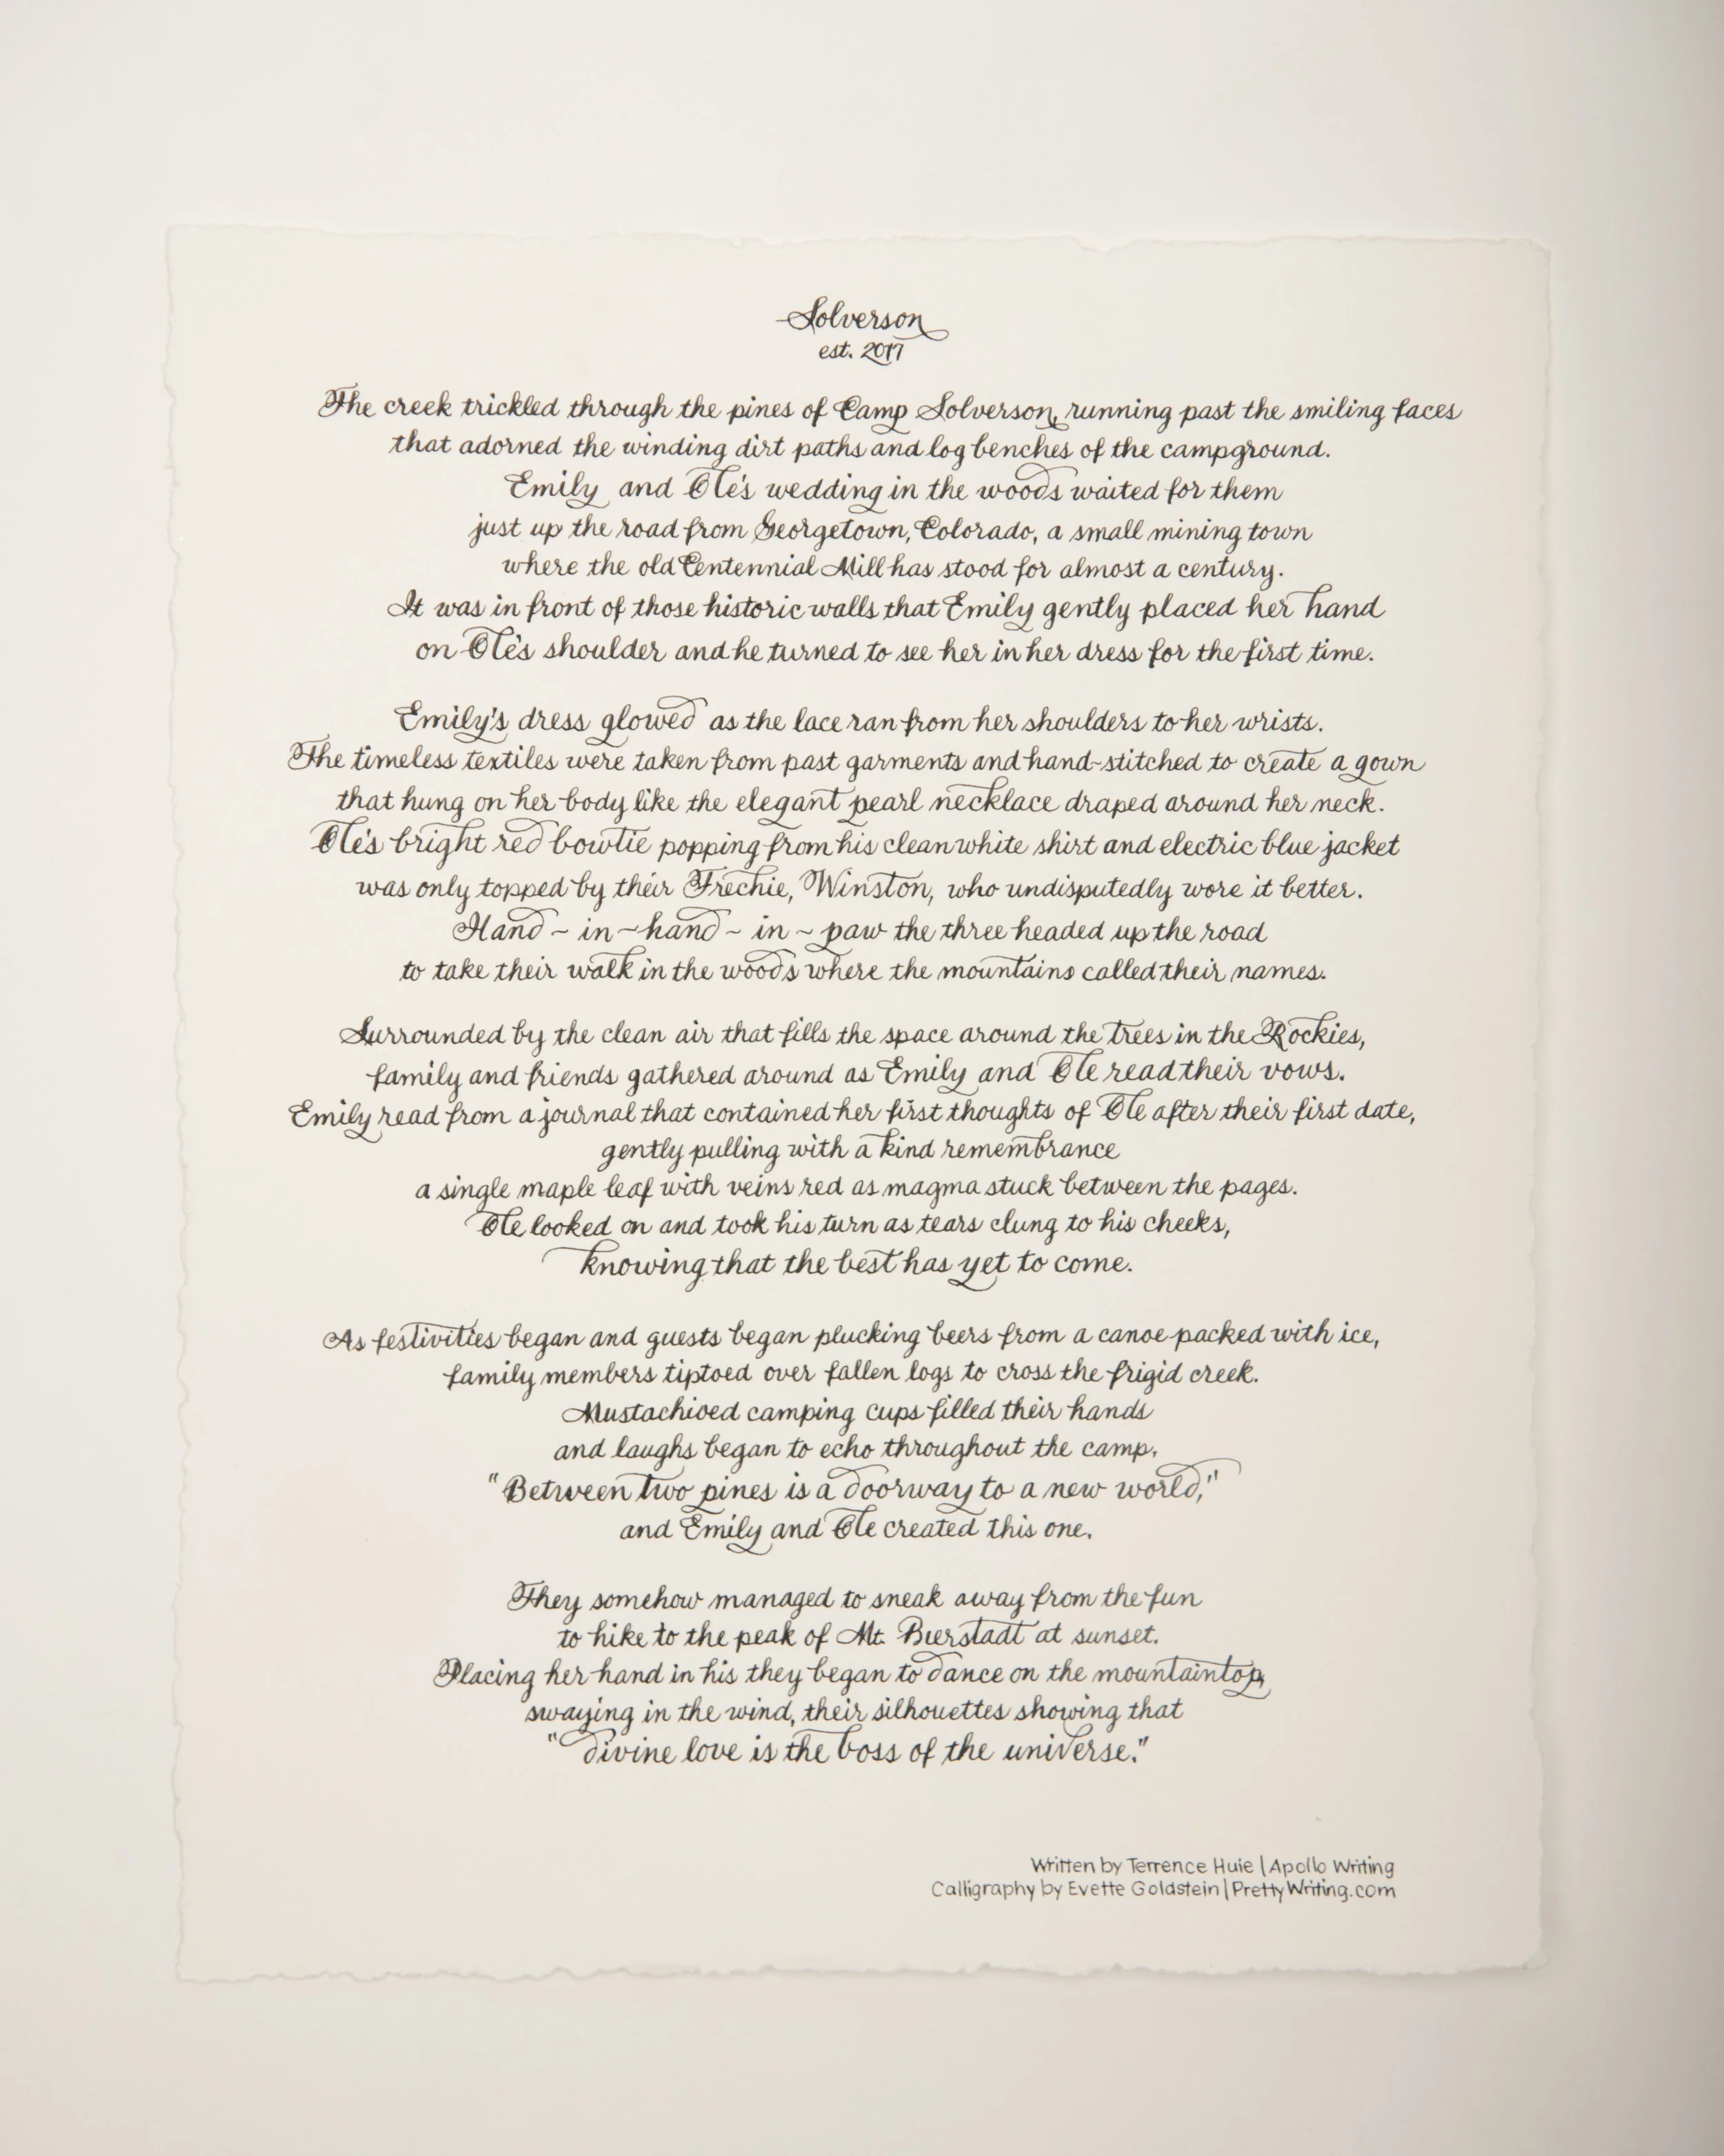 Solverson
est. 2017
The creek trickled through the pines of Camp Solverson, running past the smiling faces
that adorned the winding dirt paths and log benches of the campground.
Emily and Ole's wedding in the woods waited for them
just up the road from Georgetown, Colorado, a small mining town
where the old Centennial Mill has stood for almost a century.
It was in front of those historic walls that Emily gently placed her hand
on Ole's shoulder and he turned to see her in her dress for the first time.
Emily's dress glowed as the lace ran from her shoulders to her wrists.
The timeless textiles were taken from past garments and hand-stitched to create a gown
that hung on her body like the elegant pearl necklace draped around her neck.
Ole's bright red bowtie popping from his clean white shirt and electric blue jacket
was only topped by their Frechie, Winston, who undisputedly wore it better.
Hand ~ in ~ hand ~ in ~ paw the three headed up the road
to take their walk in the woods where the mountains called their names.
Surrounded by the clean air that fills the space around the trees in the Rockies,
family and friends gathered around as Emily and Ole read their vows.
Emily read from a journal that contained her first thoughts of Ole after their first date,
gently pulling with a kind remembrance
a single maple leaf with veins red as magma stuck between the pages.
Ole looked on and took his turn as tears clung to his cheeks,
knowing that the best has yet to come.
As festivities began and guests began plucking beers from a canoe packed with ice,
family members tiptoed over fallen logs to cross the frigid creek.
Mustachioed camping cups filled their hands
and laughs began to echo throughout the camp.
"Between two pines is a doorway to a new world,"
and Emily and Ole created this one.
They somehow managed to sneak away from the fun
to hike to the peak of Mt. Bierstadt at sunset.
Placing her hand in his they began to dance on the mountaintop,
swaying in the wind, their silhouettes showing that
"divine love is the boss of the universe."
Written by Terrence Huie | Apollo Writing
Calligraphy by Evette Goldstein | PrettyWriting.com